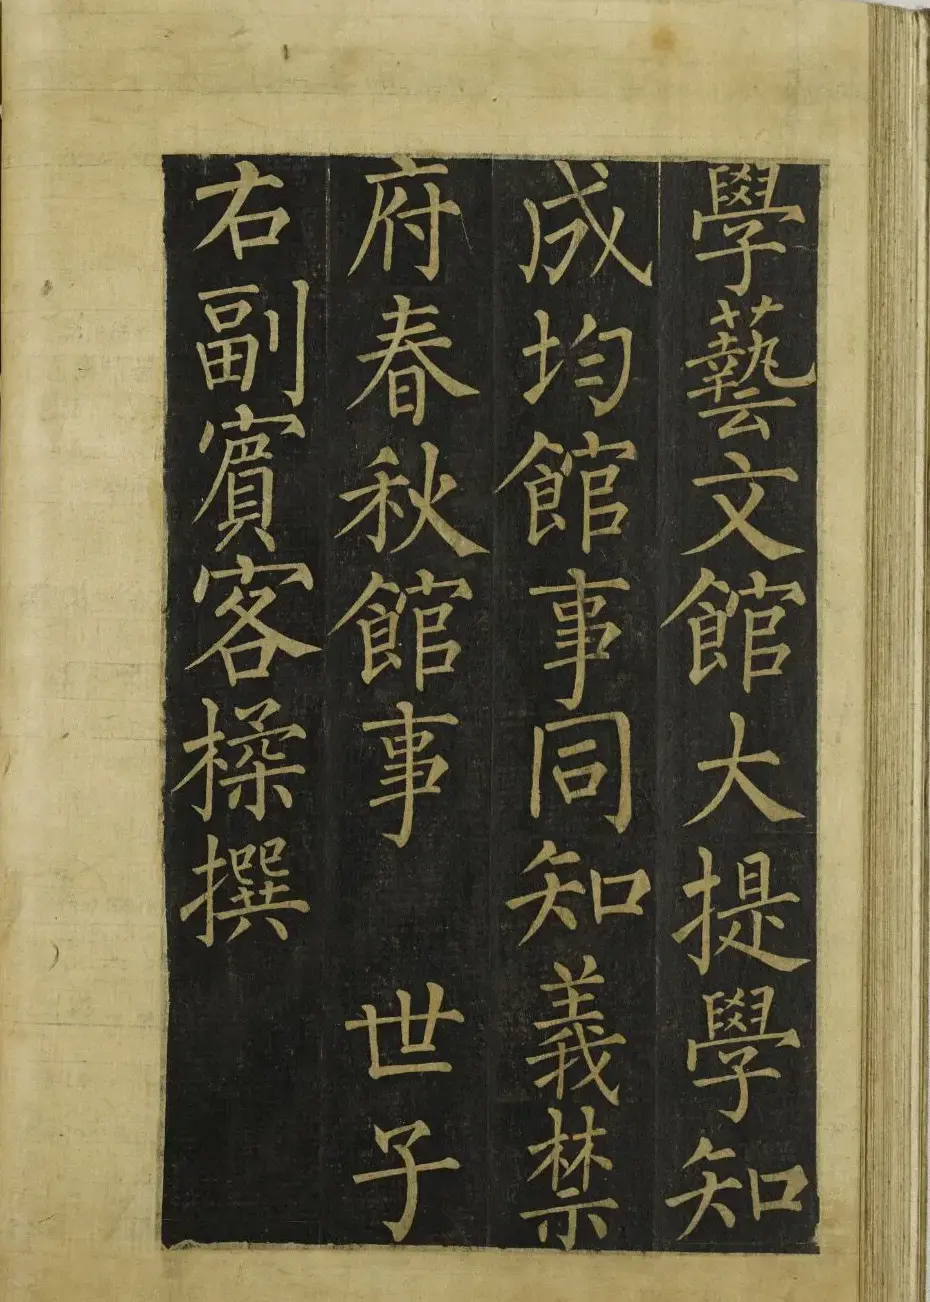 學藝文館大提學知
成均館事同知義禁
府春秋館事　世子
右副賓客楺撰